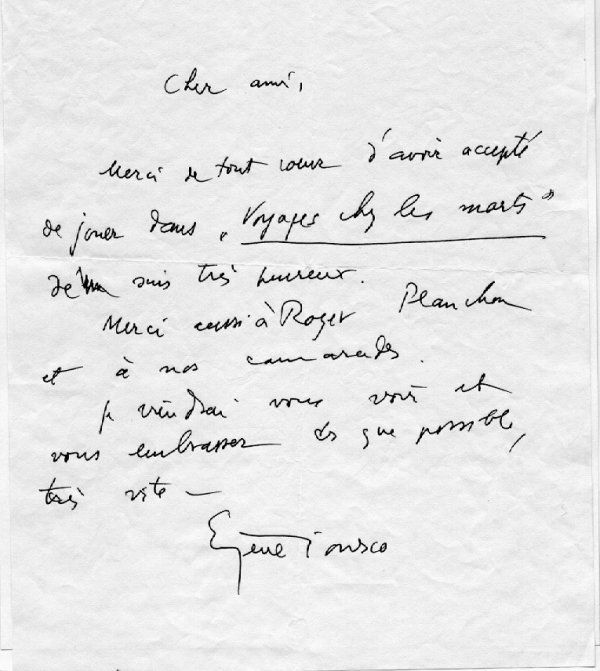 Cher ami,
Merci de tout coeur d'avoir accepté
de jouer dans „Voyages chez les morts"
suis très heureux.
Merci aussi à Roger Planchon
et à nos camarades.
Je viendrai vous voir et
vous embrasser dès que possible,
très vite —
Eugène Ionesco